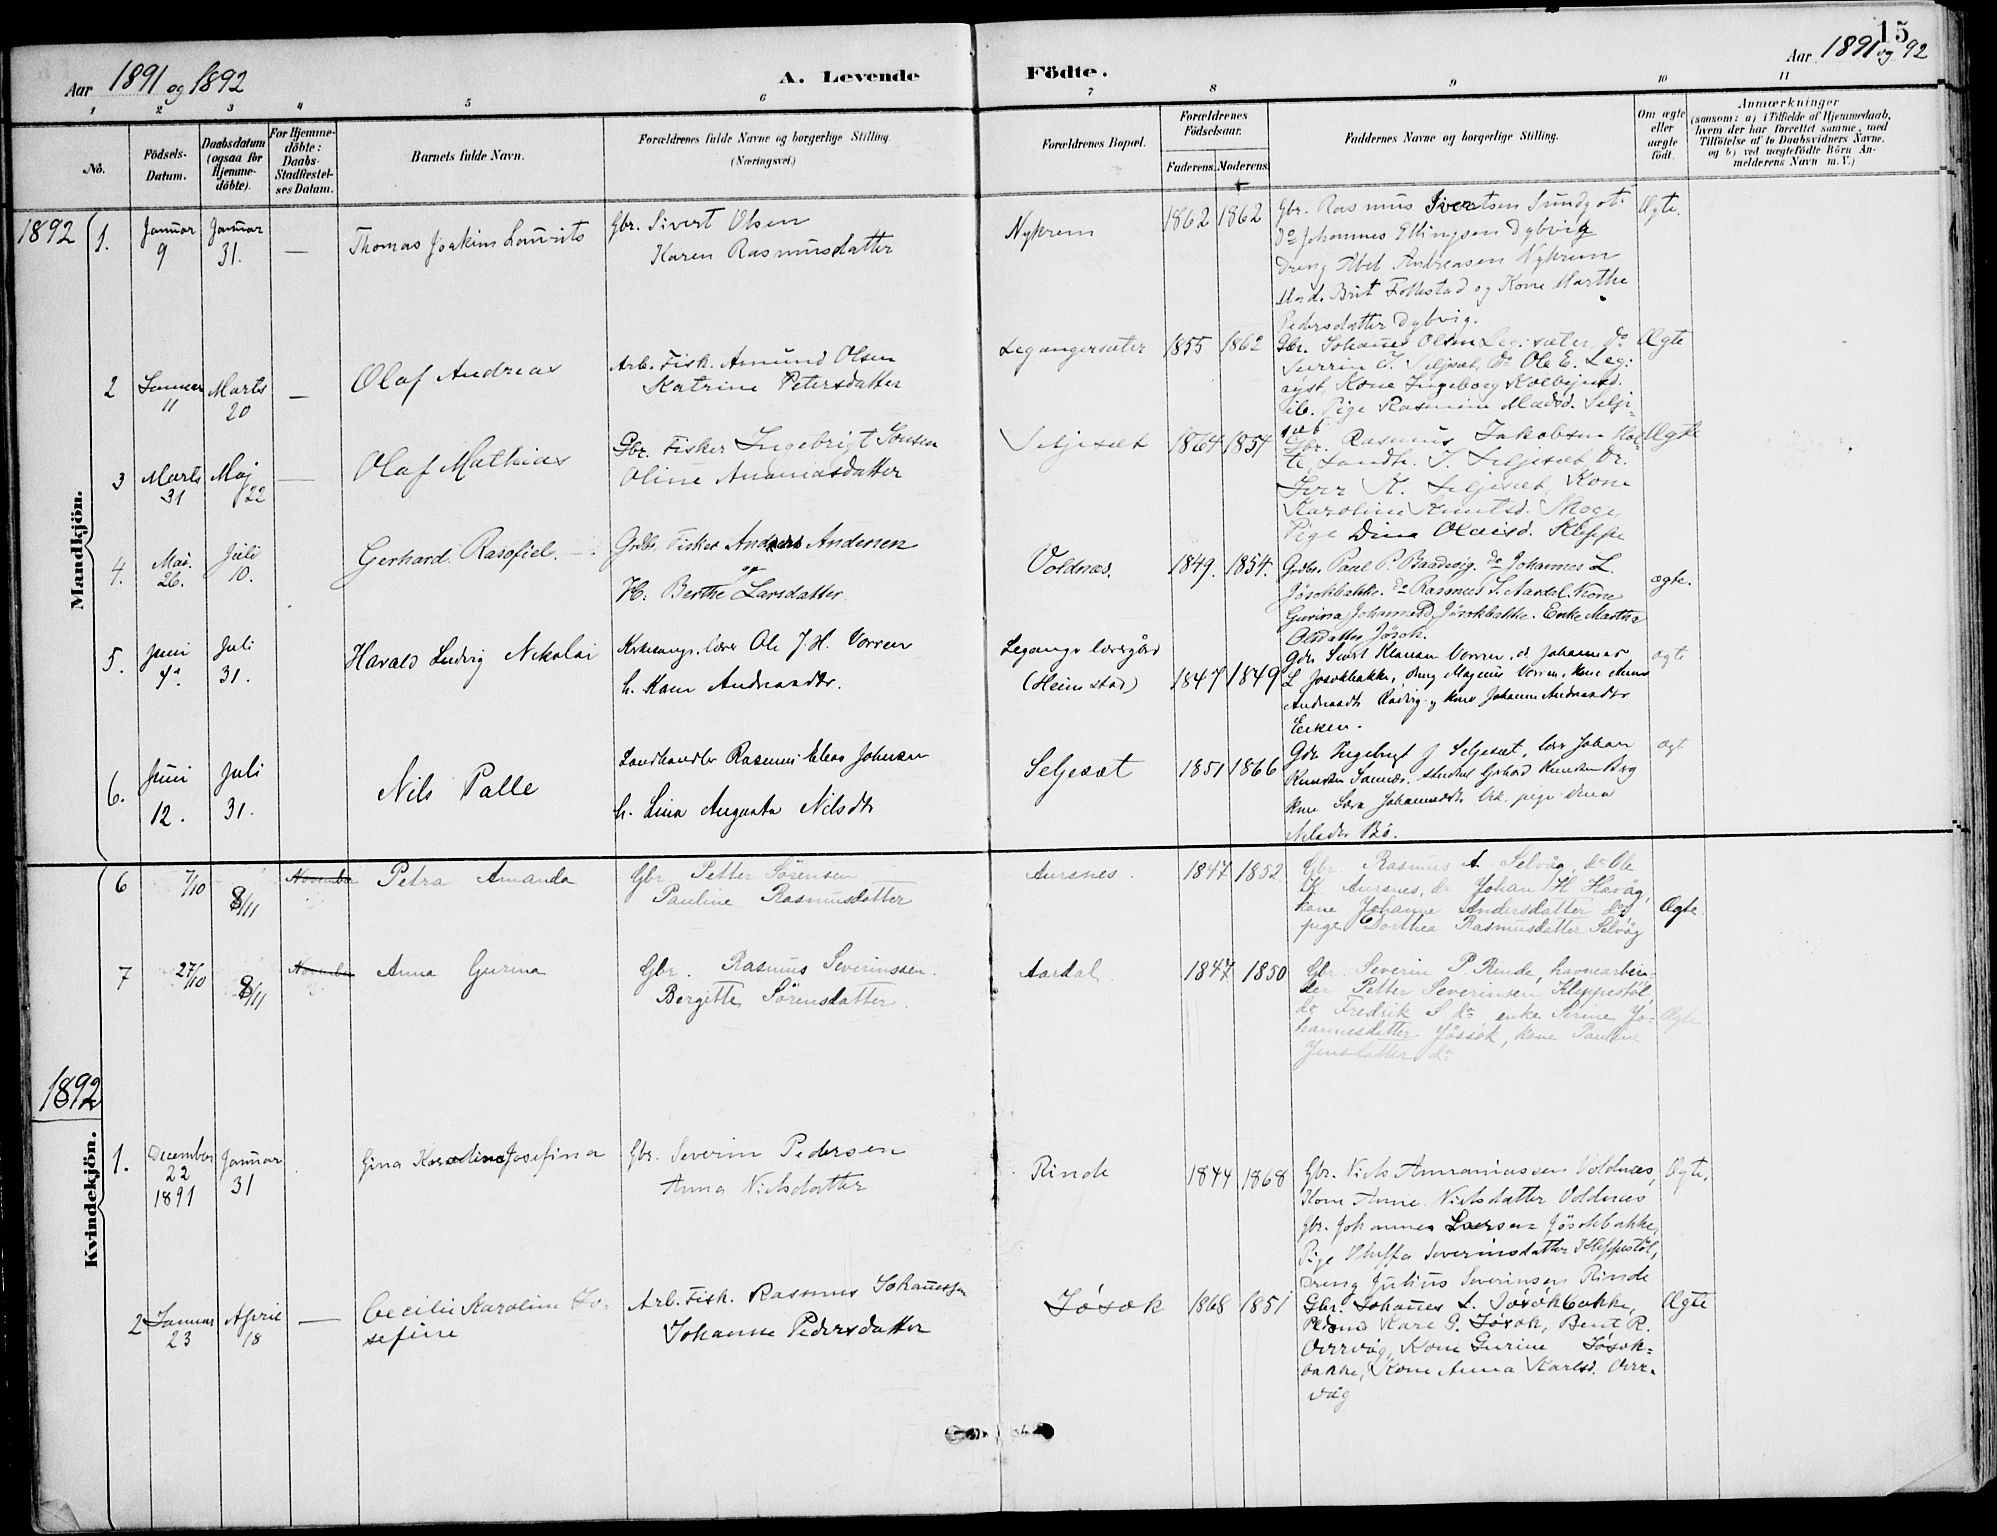 15
Aar 1891 og 1892
A. Levende Födte.
Aar 1891 og 92
1 2 3 4 5 6 7 8 9 10 11
No.
Födsels-Datum.
Daabsdatum (ogsaa for Hjemme-döbte).
For Hjemme-döbte: Daabs-Stadfæstel-ses Datum.
Barnets fulde Navn.
Forældrenes fulde Navne og borgerlige Stilling. (Næringsvei.)
Forældrenes Bopæl.
Forældrenes Födselsaar.
Faderens. Moderens.
Faddernes Navne og borgerlige Stilling.
Om ægte eller uægte födt.
Anmærkninger
(saasom: a) i Tilfælde af Hjemmedaab,
hvem der har forrettet samme, med
Tilföielse af to Daabsvidners Navne.
og b) ved uægtefödte Börn An-
melderens Navn m. V.)
Mandkjön.
1892
1. Januar 9 Januar 31. — Thomas Joakim Lauritz
Gbr. Sivert Olsen
Karen Rasmusdatter
Nykrem 1862 1862
Gbr. Rasmus Sivertsen Sundgot
do Johannes Ellingsen Dybvig
Dreng Abel Andreasen Nykrem
Mad. Brit Folkestad og Kone Marthe
Pedersdatter Dybvig.
Ægte.
2 Januar 11 Marts 20 — Olaf Andreas
Arb. Fisk. Amund Olsen
Katrine Petersdatter
Legangersæter 1855 1862
Gbr. Johanes Olsen Leg: sæter, do
Severin J. Seljesæt, do Ole E. Leg:
Kone Ingeborg
Pige Rasmine Madsd. Selje-
sæt
Ægte
3 Marts 31 Maj 22 — Olaf Mathias
Gbr. Fisker Ingebrigt Jonsen
Oline Ananiasdatter
Seljesæt 1864 1854
Gbr. Rasmus Jakobsen
Landh. J. Seljesæt, Dr.
Iver K. Seljesæt, Kone
Karoline Knutsd. Skoge,
Pige Dina Olausd. Kleppe
Ægte
4. Mai. 26. Juli 10. Gerhard Rasofiel. —
Grdbr. Fisker Anders Andersen
og
H: Berthe Larsdatter
Voldnæs. 1849. 1854.
Grdbr. Paul P. Baadsvig. do Johannes L.
Jösokbakke. do Rasmus S. Aardal. Kone
Gurina Johannesd. Jösokbakke. Enke Martha
Olsdatter Jösok.
ægte.
5. Juni 4de Juli 31. Harald Ludvig Nikolai
Kirkesanger, lærer Ole J. H. Vorren
h. Kone Andreasdtr.
Legangr lærergård
(Heimstad)
1847 1849
Gdbr Sivert Klausen Vorren, do Johannes
L Jøsokbakke, dreng Magnus Vorren, kone Anne
Andreasdtr Rødvig, kone Johanne Andreasdtr
Eiksen.
ægte
6. Juni 12. Juli 31. Nils Palle
Landhandler Rasmus Elias Johnsen
h. Lina Augusta Nilsdtr
Seljesæt 1851 1866
Gdbr Ingebrigt J Seljesæt, lærer Johan
Knutsen student Gerhard Knudsen Berg
kone Sara Johannesdtr pige Dina
Bö.
ægt
6 7/10 8/11 November Petra Amanda
Gbr. Petter Sörensen
Pauline Rasmusdatter
Aursnes. 1847 1852
Gbr. Rasmus A. Selvåg, do Ole
K. Aursnes, do Johan H. Havåg,
kone Johanne Andersdatter do,
pige Dorthea Rasmusdatter Selvåg
Ægte
7 27/10 8/11 November Anna Gurina
Gbr. Rasmus Severinssen.
Bergitte Sörensdatter.
Aardal 1847 1850
Gbr. Severin P. Rinde, havnearbei-
der Petter Severinsen Kleppestöl,
do Fredrik S. do, enke Serine Jo-
hannesdatter Jössok, kone Pauline
Jensdatter do
Ægte
1892
Kvindekjön.
1. December 22 1891 Januar 31 Gina Karoline Josefina
Gbr. Severin Pedersen
Anna Nielsdatter
Rinde 1844 1868
Gbr. Niels Annaniassen Voldnæs,
Kone Anne Nielsdatter Voldnæs
Gbr. Johannes Larsen Jösokbakke,
Pige Oluffa Severinsdatter Kleppestöl,
Dreng Julius Severinsen Rinde
Ægte,
2 Januar 23 April 18 — Cecilie Karoline Jo-
sefine
Arb. Fisk. Rasmus Johanessen
Johanne Pedersdatter
Jösok 1868 1851
Gbr. Johanes L. Jösokbakke,
Pedsne Kare P. Jösok, Bent R.
Overvåg, Kone Gurine Jösok-
bakke, Kone Anna Karlsd. Over-
våg
Ægte